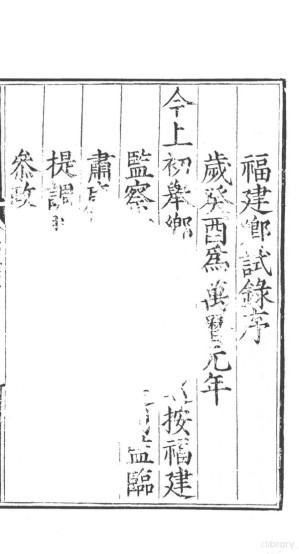 福建鄉試錄序
歲癸酉爲萬曆元年
今上初舉鄉按福建
監察監臨
肅
提調
參政
library